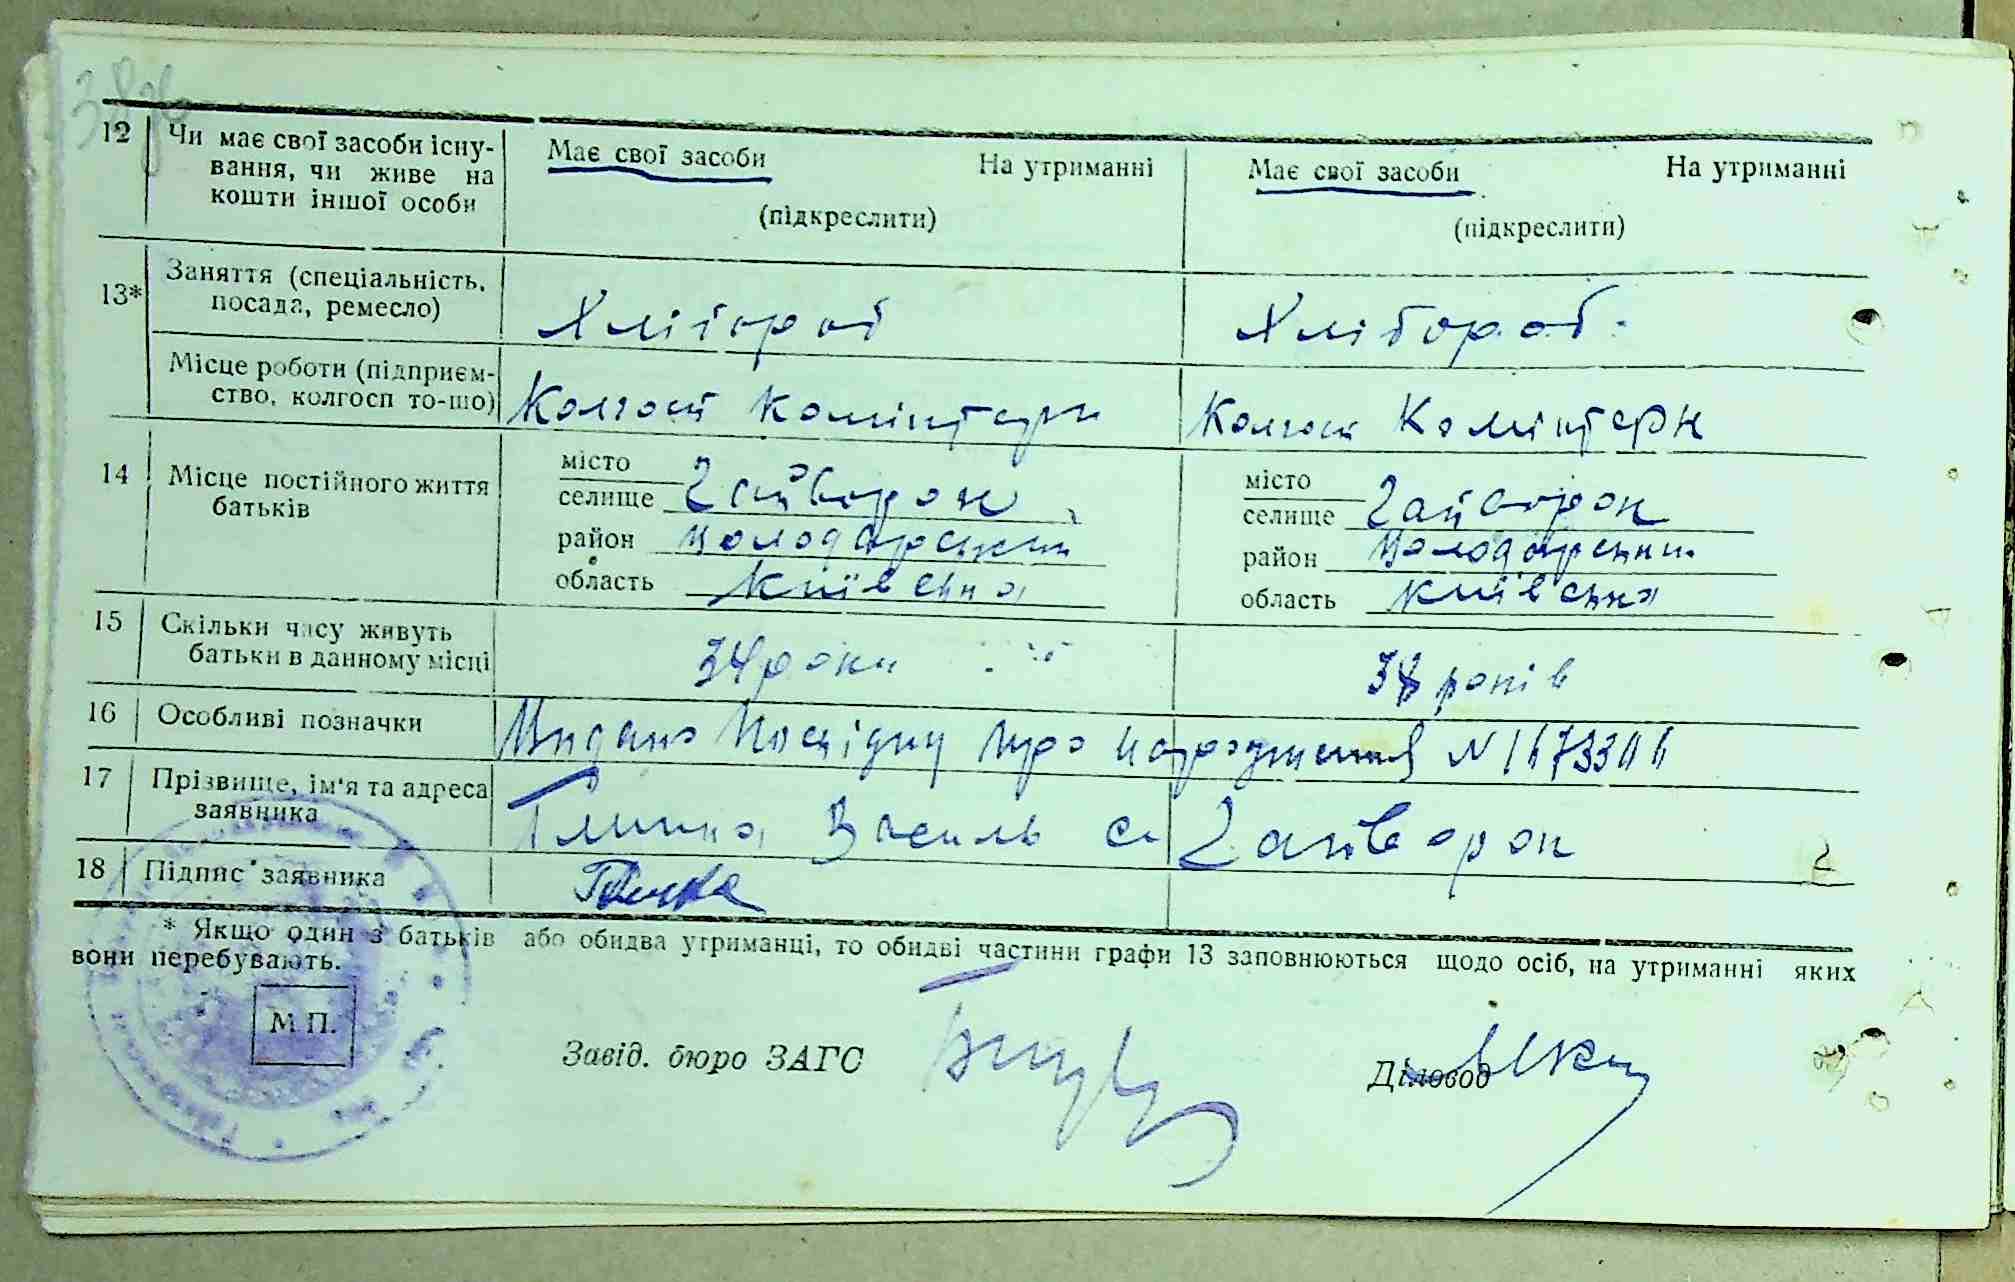 12 Чи має свої засоби існу- Має свої засоби На утриманні Має свої засоби На утриманні
вання, чи живе на
кошти іншої особи (підкреслити) (підкреслити)
13* Заняття (спеціальність,
посада, ремесло) Хлібороб Хлібороб.
Місце роботи (підприєм-
ство, колгосп то-що) Колгосп Комінтерн Колгосп Комінтерн
14 Місце постійного життя
батьків
місто
селище Гайворон
район Володарський
область Київська
місто
селище Гайворон
район Володарський
область Київська
15 Скільки часу живуть
батьки в данному місці 34 роки 38 років
16 Особливі позначки Видано посвідку про народження №
17 Прізвище, ім'я та адреса
заявника Василь с. Гайворон
18 Підпис заявника
* Якщо один з батьків або обидва утриманці, то обидві частини графи 13 заповнюються щодо осіб, на утриманні яких
вони перебувають.
М.П.
Завід. бюро ЗАГС Діловод